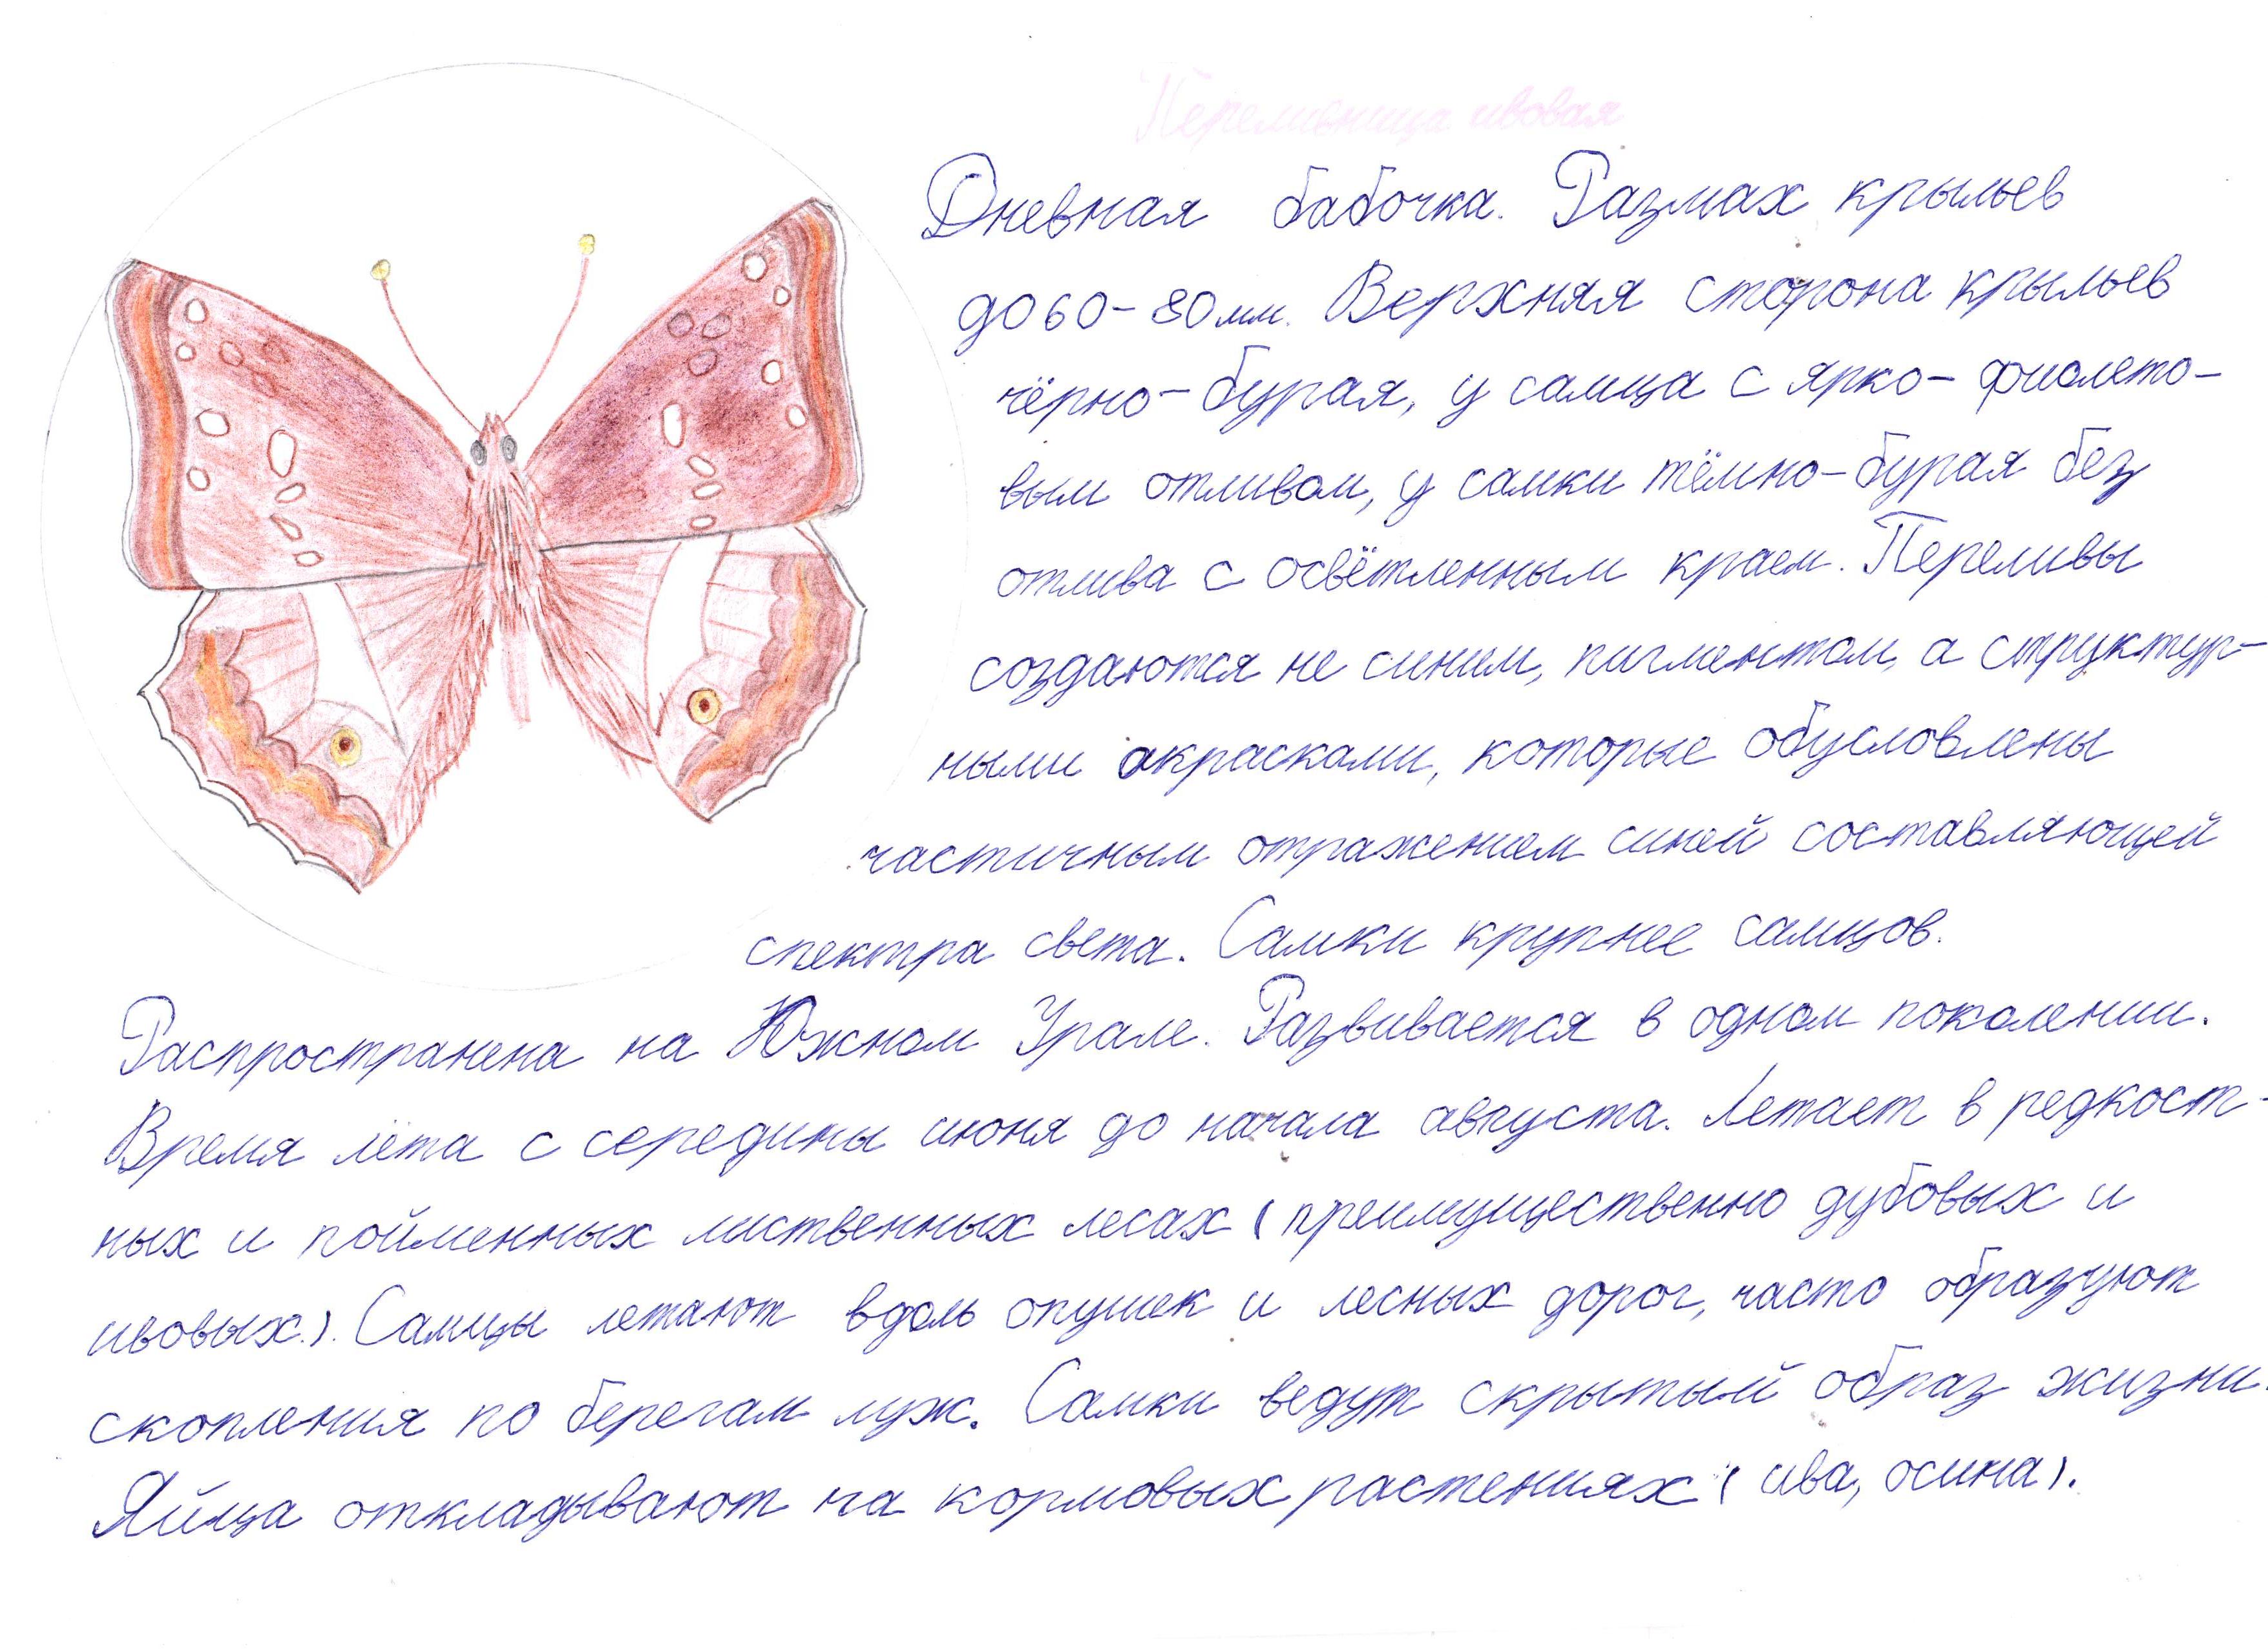 Переливница ивовая
Дневная бабочка. Размах крыльев
до 60-80мм. Верхняя сторона крыльев
чёрно-бурая, у самца с ярко-фиолето-
вым отливом, у самки тёмно-бурая без
отлива с осветленным краем. Переливы
создаются не синим, пигментом, а структур-
ными окрасками, которые обусловлены
частичным отражением синей составляющей
спектра света. Самки крупнее самцов.
Распространена на Южном Урале. Развивается в одном поколении.
Время лёта с середины июня до начала августа. Летает в редкост-
ных и пойменных лиственных лесах (преимущественно дубовых и
ивовых.). Самцы летают вдоль опушек и лесных дорог, часто образуют
скопления по берегам луж. Самки ведут скрытый образ жизни.
Яйца откладывают на кормовых растениях (ива, осина).